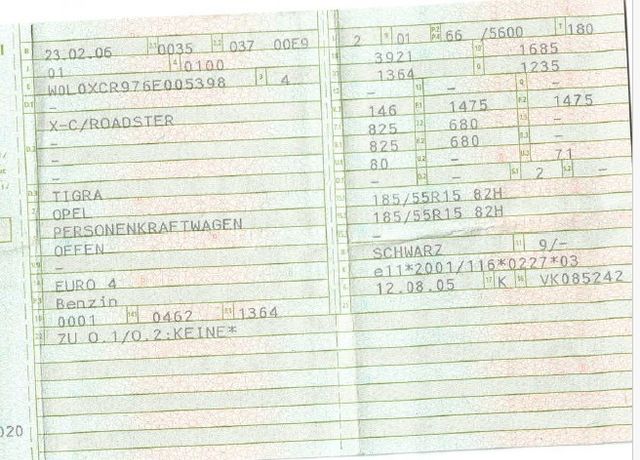 23.02.06 2.1 0035 2.2 037 00E9
01 4 0100
W0L0XCR976E005398 3 4
-
X-C/ROADSTER
-
-
-
TIGRA
OPEL
PERSONENKRAFTWAGEN
OFFEN
-
EURO 4
Benzin
0001 14.1 0462 P.1 1364
ZU O.1/O.2:KEINE*
020
2 9 01 P.2 P.4 66 /5600 T 180
3921 1685
1364 1235
- - -
146 1475 1475
825 680 -
825 680 -
80 - 71
- - S.1 2 S.2 -
185/55R15 82H
185/55R15 82H
-
SCHWARZ 11 9/-
e11*2001/116*0227*03
12.08.05 17 K 16 VK085242